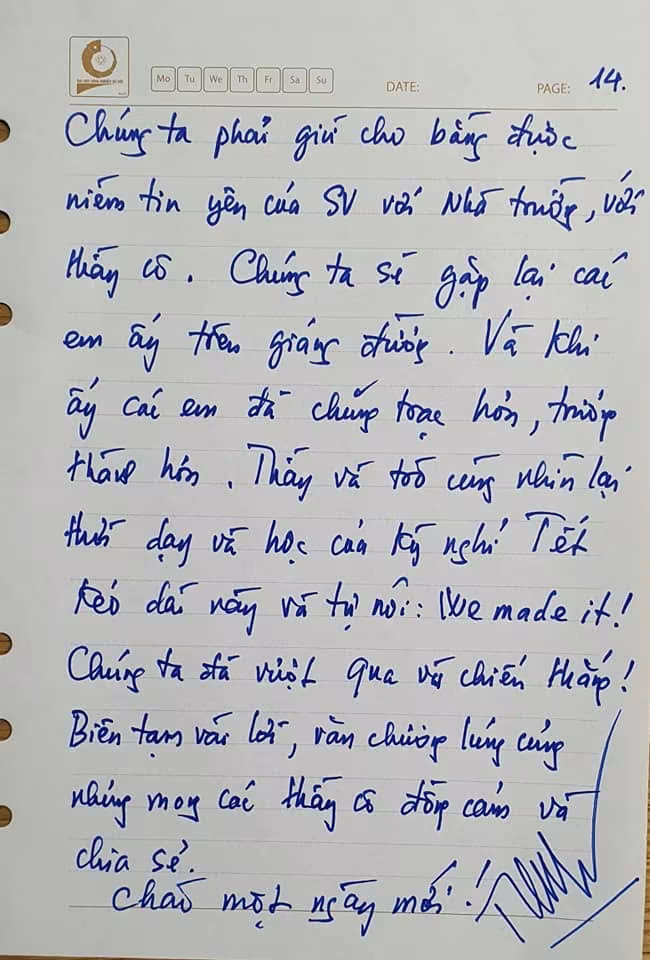 Mo Tu We Th Fr Sa Su DATE: PAGE: 14.
Chúng ta phải giữ cho bằng được
niềm tin yêu của SV với Nhà trường, với
thầy cô. Chúng ta sẽ gặp lại các
em ấy trên giảng đường. Và khi
ấy các em đã chững chạc hơn, trưởng
thành hơn. Thầy và trò cùng nhìn lại
thời dạy và học của kỳ nghỉ Tết
kéo dài này và tự nói: We made it!
Chúng ta đã vượt qua và chiến thắng!
Biên tạm vài lời, văn chương lủng củng
nhưng mong các thầy cô đồng cảm và
chia sẻ.
Chào một ngày mới!